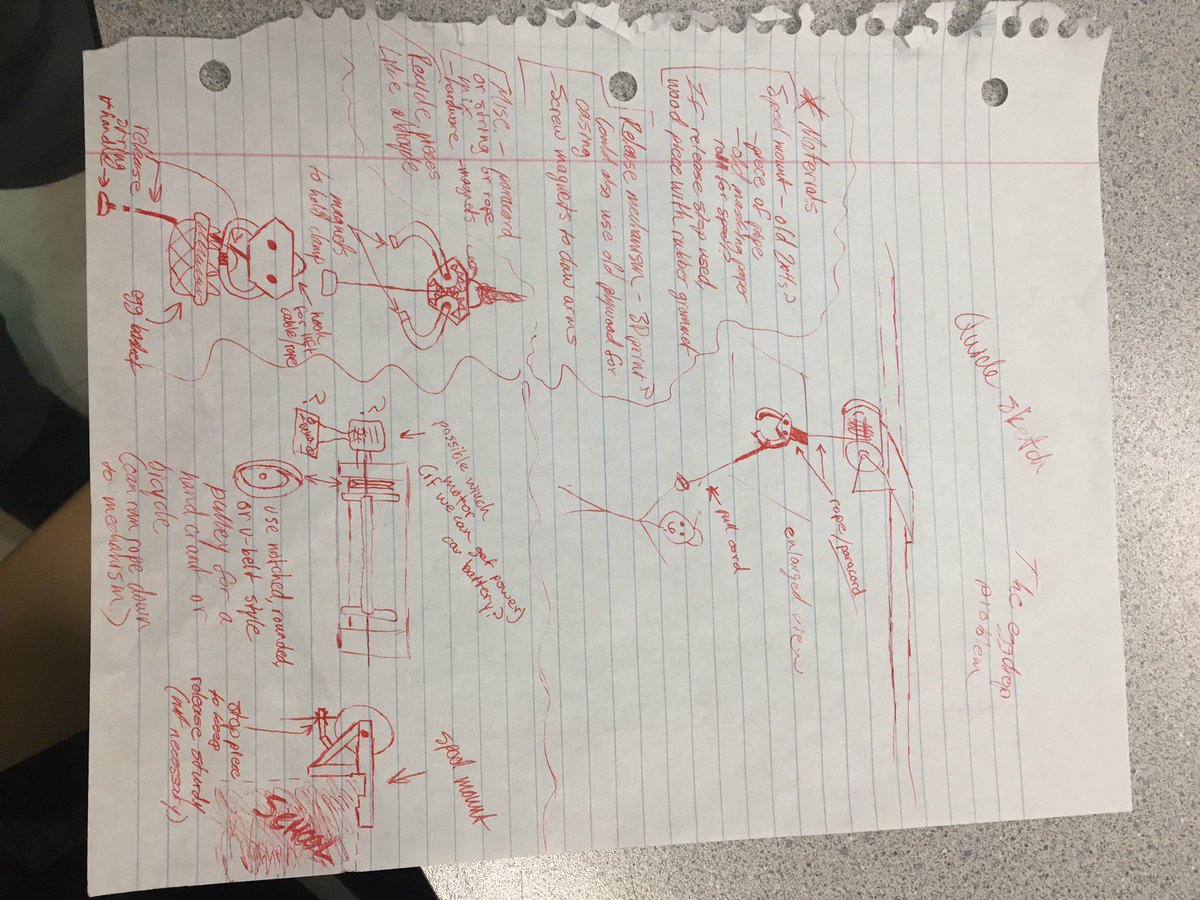 The egg drop
problem
Quick sketch
rope/paracord
enlarged view
* pull cord
* Materials
Spool mount - old 2x4s?
- piece of pipe
- old masking paper
roll for spool?
If release stop used,
wood piece with rubber grommet
Release mechanism - 3D print?
Could also use old plywood for
casing
Screw magnets to claw arms
Misc. - paracord
or string or rope
- hardware - magnets
magnets
to hold clamp
hook
for lift
cable/rope
release
string
+ handle →
egg basket
possible winch
motor
(if we can get power)
car battery?
?
?
use notched, rounded,
or v-belt style
pulley for a
hand crank or
bicycle
(can run rope down
to mechanism)
spool mount
Stop piece
to keep
release sturdy
(not necessary)
School